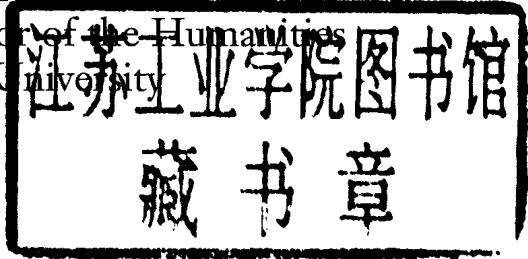 or of the Humanities
University
江苏工业学院图书馆
藏书章